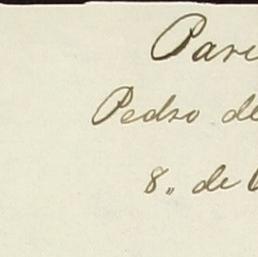 Pari
Pedro de
8,, de